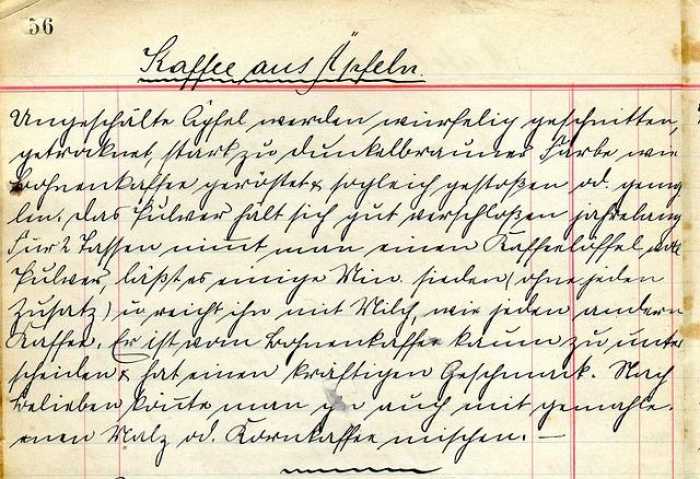 56
Kaffee aus Äpfeln.
Ungeschälte Äpfel werden würfelig geschnitten,
getrocknet, stark zu dunkelbrauner Farbe wie
Bohnenkaffee geröstet & sogleich gestoßen od. gemah
len. Das Pulver hält sich gut verschloßen jahrelang
Für 2 Tassen nimmt man einen Kaffeelöffel voll
Pulver, läßt es einige Min. sieden (ohne jeden
Zusatz) u reicht ihn mit Milch, wie jeden andern
Kaffee. Er ist vom Bohnenkaffee kaum zu unter
scheiden & hat einen kräftigen Geschmack. Nach
Belieben könnte man ihn auch mit gemahle-
nen Malz od. Kornkaffee mischen. —